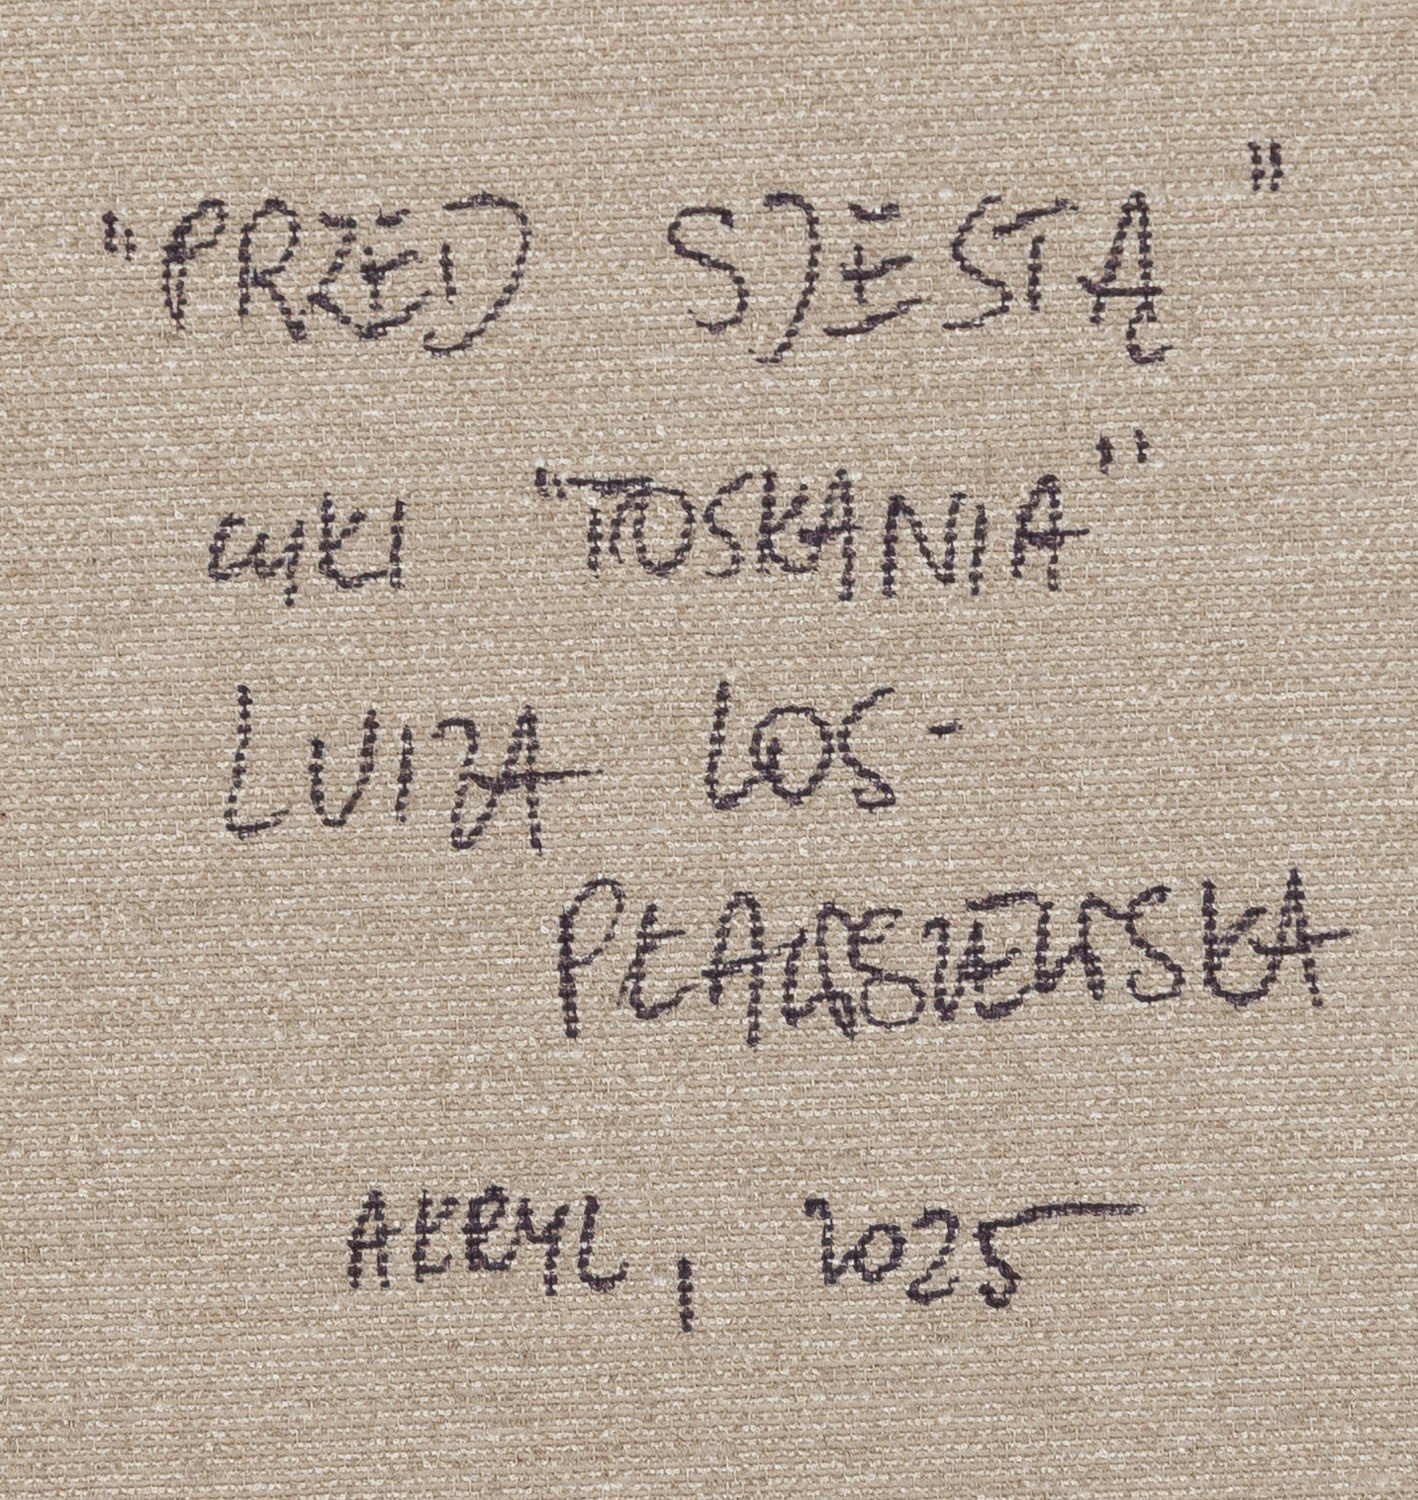 "PRZED SJESTĄ"
cykl "TOSKANIA"
LUIZA LOS-
PŁAWSZEWSKA
AKRYL, 2025